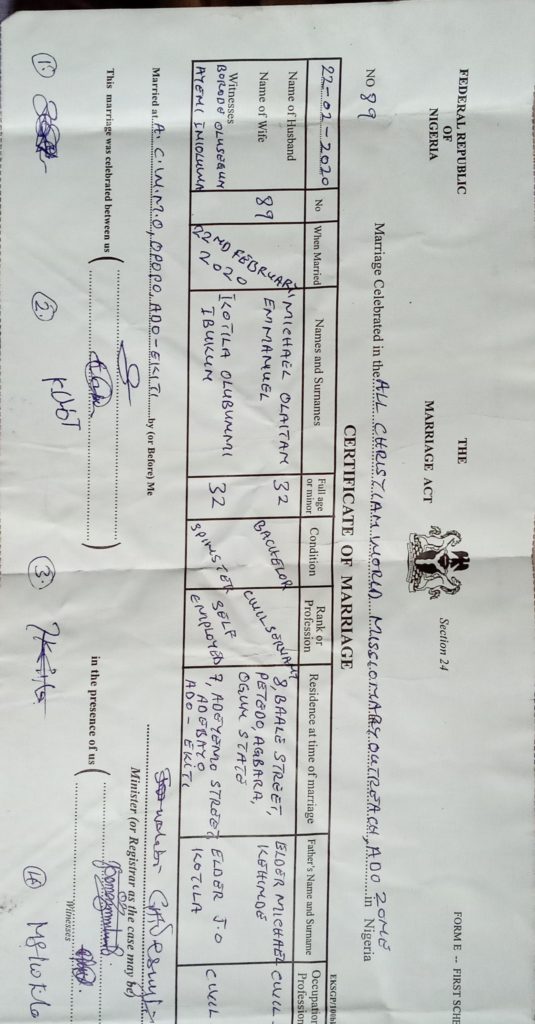 FEDERAL REPUBLIC
OF
NIGERIA
THE
MARRIAGE ACT
Section 24
FORM E -- FIRST SCHE
NO 89
Marriage Celebrated in the ALL CHRISTIAN WORLD MISSIONARY OUTREACH, ADO ZONE in Nigeria
CERTIFICATE OF MARRIAGE
EKSGP/100bk
22-02-2020
No
When Married
Names and Surnames
Full age or minor
Condition
Rank or Profession
Residence at time of marriage
Father's Name and Surname
Occupation Profession
Name of Husband
Name of Wife
Witnesses
BORODE OLUSEGUN
AYEMI INIOLUWA
89
22ND FEBRUARY,
2020
MICHAEL OLAITAN
EMMANUEL
32
BACHELOR
CIVIL SERVANT
8, BAALE STREET,
PETEDO, AGBARA,
OGUN STATE
ELDER MICHAEL
KEHINDE
CIVIL
IKOTILA OLUBUNMI
IBUKUN
32
SPINSTER
SELF
EMPLOYED
9, ADEYEMO STREET,
ADEBAYO
ADO-EKITI
ELDER J.O
IKOTILA
CIVIL
Married at A.C.W.M.O, OPOPO, ADO-EKITI by (or Before) Me
Minister (or Registrar as the case may be)
This marriage was celebrated between us
in the presence of us
Witnesses
1.
2.
3.
4.